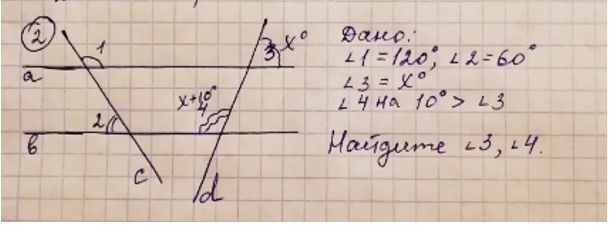 2
1
3
x°
a
x+10°
4
2
b
c
d
Дано:
∠1=120°, ∠2=60°
∠3=x°
∠4 на 10° > ∠3
Найдите ∠3, ∠4.